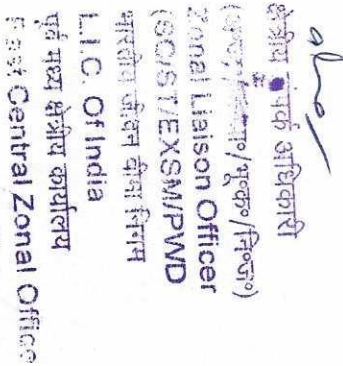 क्षेत्रीय संपर्क अधिकारी
/भू०क०/नि०ज०)
Zonal Liaison Officer
(SC/ST/EXSM/PWD
भारतीय जीवन बीमा निगम
L.I.C. Of India
पूर्व मध्य क्षेत्रीय कार्यालय
East Central Zonal Office